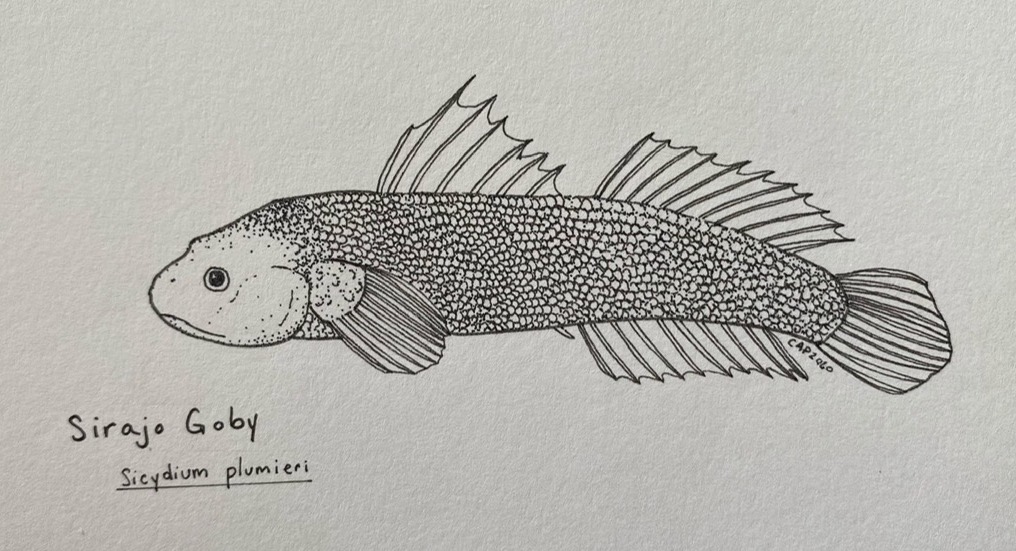 CAP2020
Sirajo Goby
Sicydium plumieri